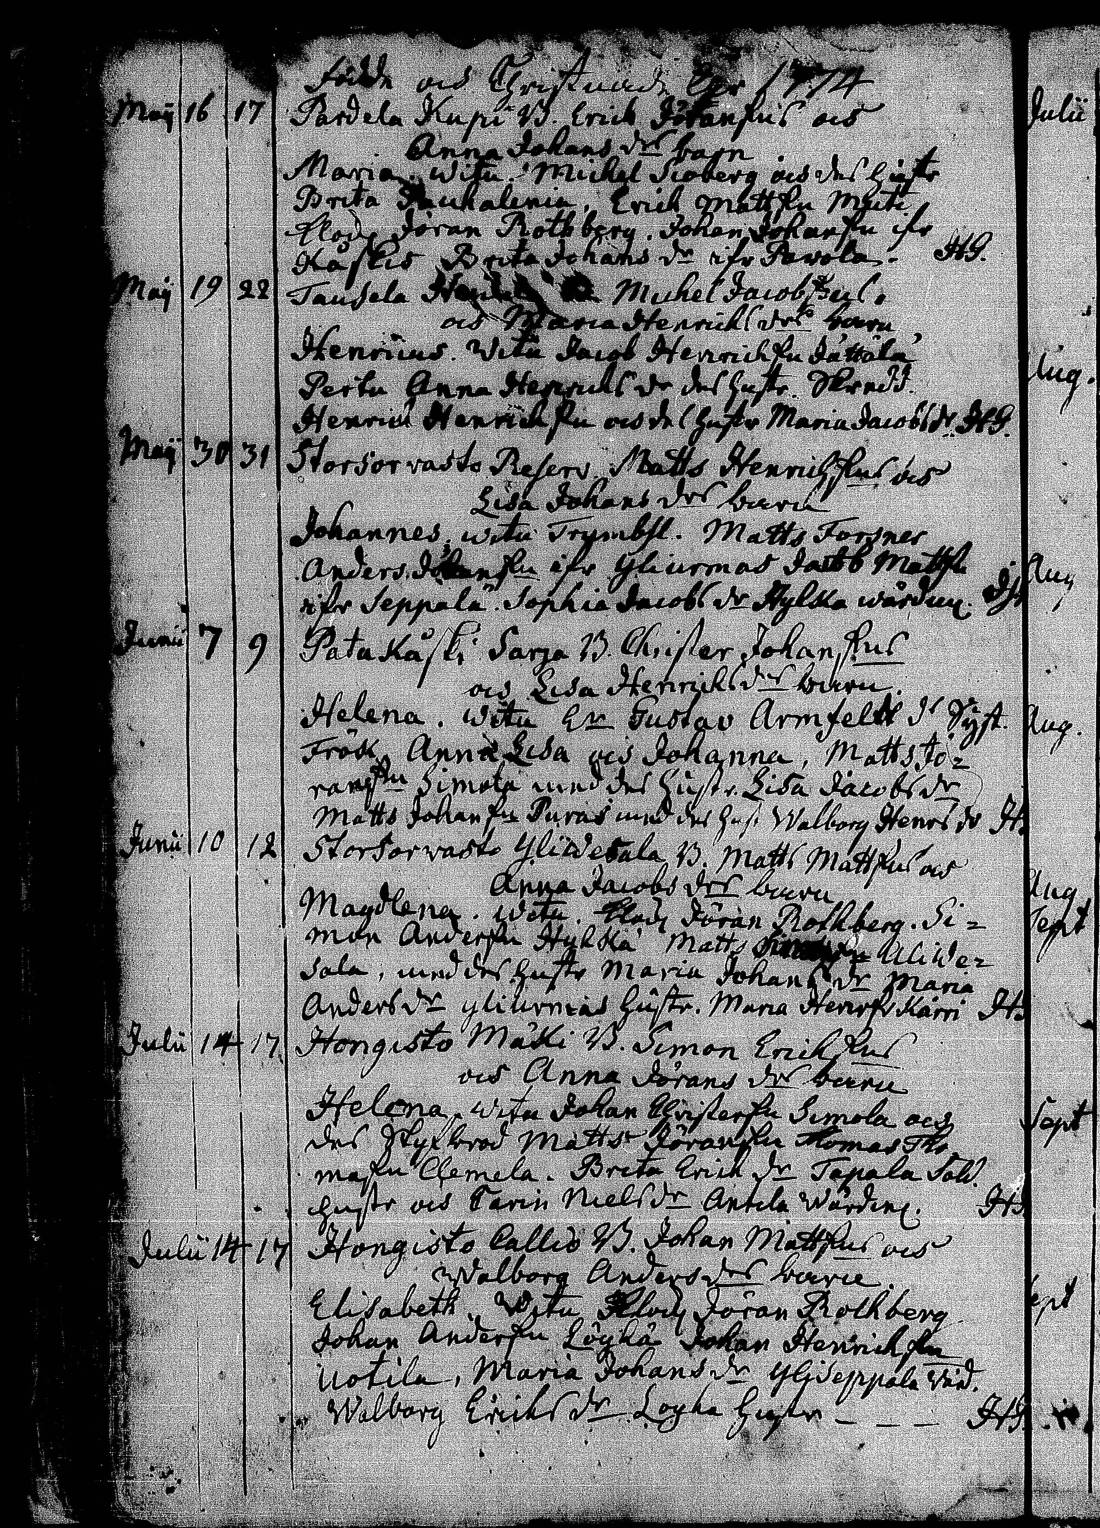 födde och Christnade Åhr 1774
Maij 16 17 Pardela Kupi B. Erich Jöransons och
Anna Johans drs barn
Maria. witn. Michel Sioberg och des hustr
Brita Erich Mattsn
Klock Jöran Rothberg. Johan Johansn ifr
Kåskis Brita Johans dr ifr Parola. HG.
Maij 19 22 Tausela Michel Jacobsons
och Maria Henrichs drs barn
Henricus. witn Jacob Henrichsn Jättälä
Pertu Anna Henrichs dr des hustr. Skredd.
Henrich Henrichsn och des hustr Maria Jacobs dr. HG.
Maij 30 31 Storsorvasto Reserv. Matts Henrichsons och
Lisa Johans drs barn
Johannes. witn Trymbsl. Matts Forsner
Anders Johansn ifr Yliurmas Jacob Mattsn
ifr Seppälä. Sophia Jacobs dr Hylkä
Junii 7 9 Patakåski Sarja B. Christer Johansons
och Lisa Henrichs drs barn.
Helena. witn Er Gustav Armfelt dr Syst.
Frök Anna Lisa och Johanna, Matts Jö=
ransn Simola med des hustr. Lisa Jacobs dr
Matts Johansn Puras med des hust Walborg Henrs dr HG
Junii 10 12 Storsorvasto Ylidetala B. Matts Mattsons och
Anna Jacobs drs barn
Magdlena. witn. Klock Jöran Rothberg. Si=
mon Andersn Hylkä Matts Alide=
tala, med des hustr Maria Johans dr Maria
Anders dr Yliurmas hustr. Maria Henrs dr Kärri HG
Julii 14 17 Hongisto Mäki B. Simon Erichsons
och Anna Jörans drs barn
Helena. witn Johan Christersn Simola och
des Matts Jöransn Thomas Tho
masn Clemela. Brita Erichs dr Tapala Sold.
hustr och Carin Niels dr Antila HG
Julii 14 17 Hongisto Callio B. Johan Mattsons och
Walborg Anders drs barn.
Elisabeth. witn Klock Jöran Rothberg
Johan Andersn Löyhä Johan Henrichsn
Uotila, Maria Johans dr Yliseppälä Wärd.
Walborg Erichs dr Loyha hustr — — — HG.
Julii
Aug.
Aug
Aug.
Aug
Sept
Sept
ept